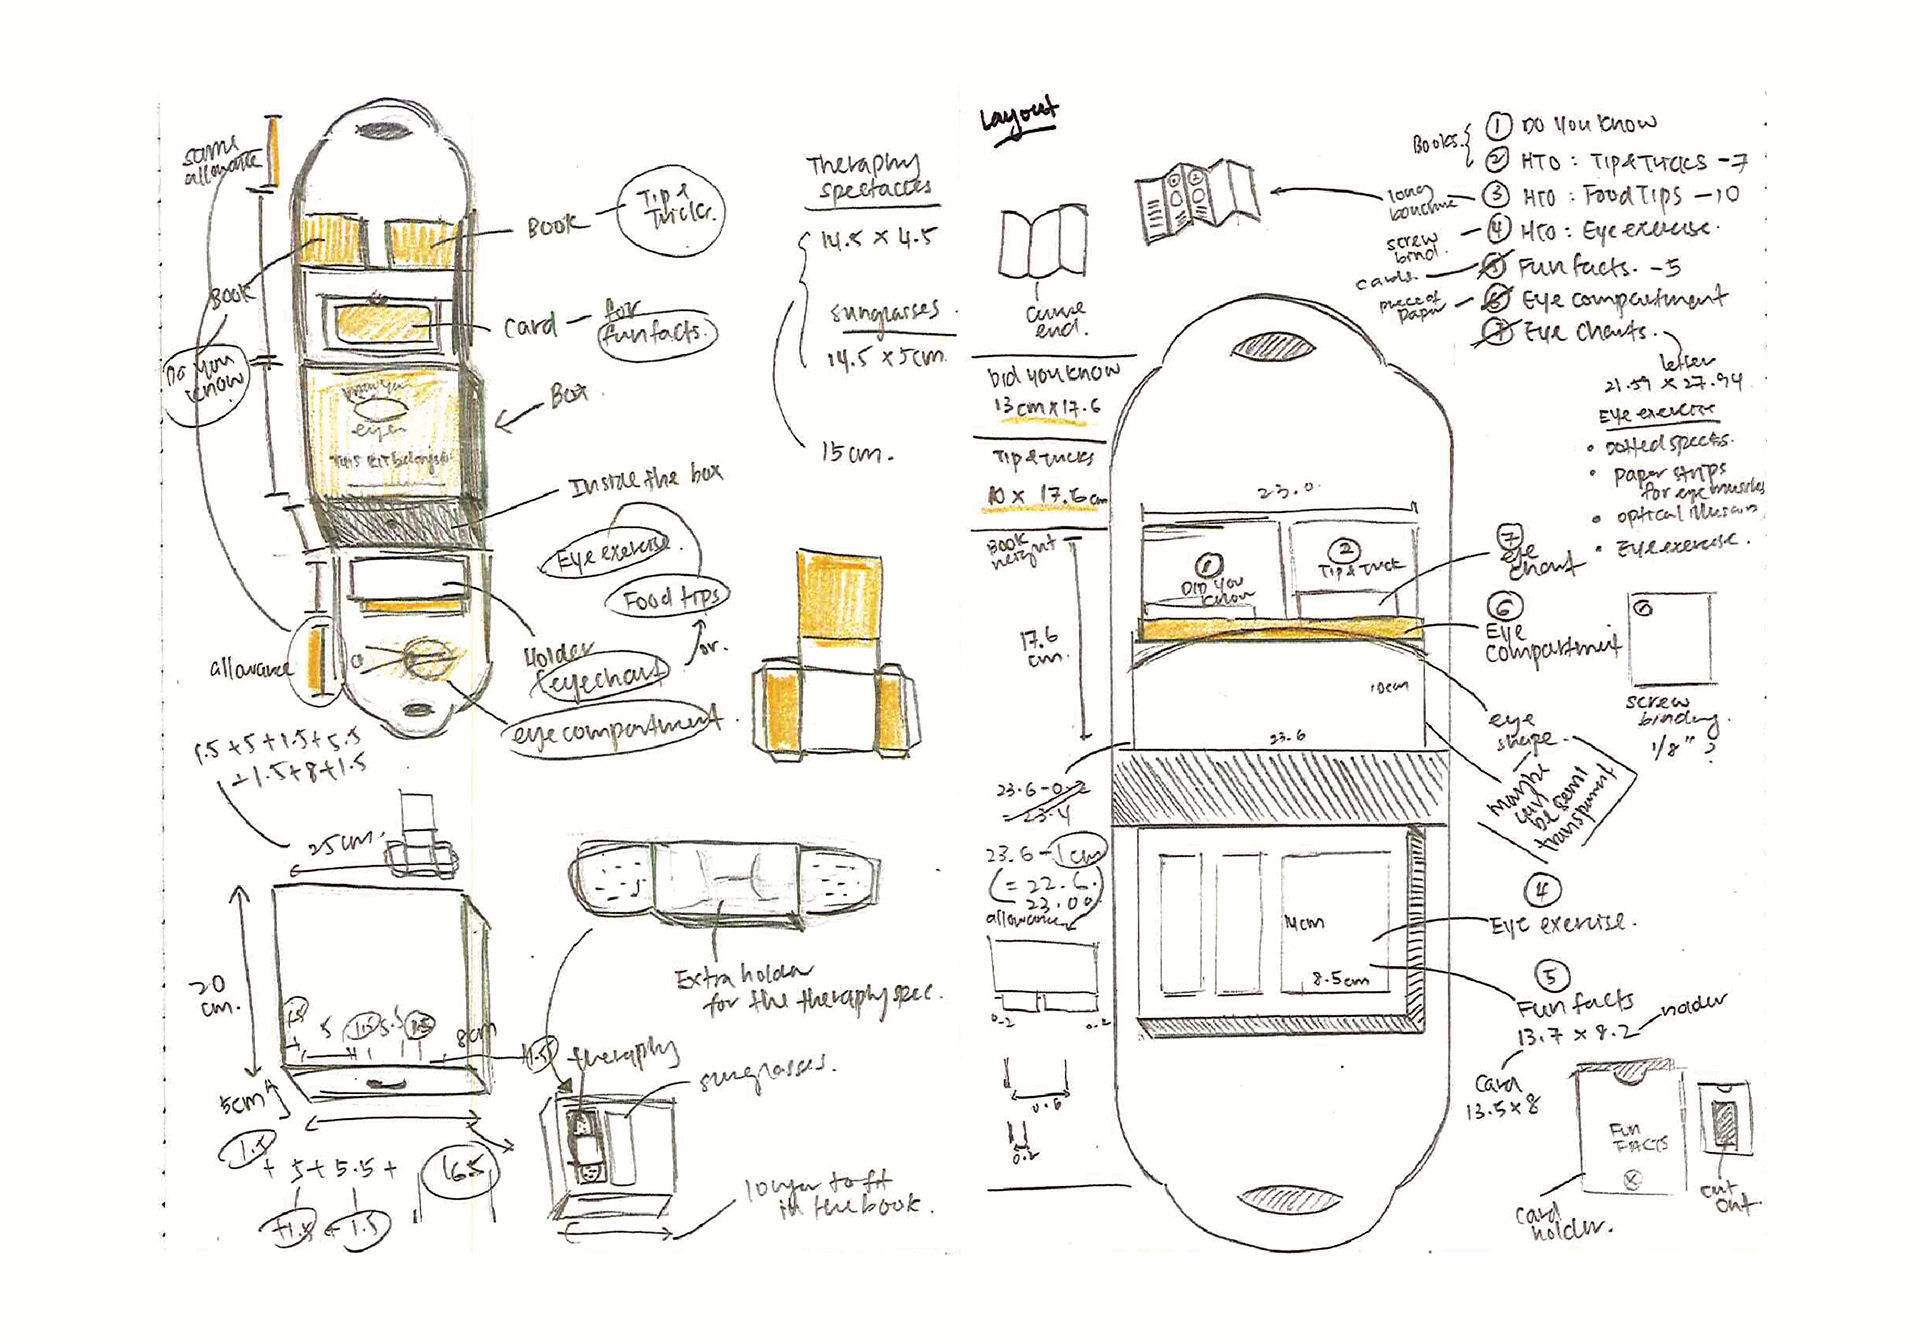 same
allowance
Book
Tip &
Tricks.
Book
Card
for
fun facts.
Do you
know
Box.
know your
eyes
this kit belongs to
Inside the box
Eye exercise.
Food tips
or.
Holder
eyechart
eye compartment.
allowance
1.5 + 5 + 1.5 + 5.5
+ 1.5 + 8 + 1.5
25cm.
20
cm.
1.5
5
1.5
5.5
1.5
8cm
1.5
5cm
1.5
+ 5 + 5.5 +
16.5
+1.5
+ 1.5
Theraphy
spectacles
14.5 x 4.5
sunglasses.
14.5 x 5cm.
15cm.
Extra holder
for the theraphy spec.
theraphy
sunglasses.
longer to fit
in the book.
Layout
curve
end.
Did you know
13cm x 17.6
Tip & Tricks
10 x 17.6cm
Book
height
17.6
cm.
23.6-0.2
= 23.4
23.6 - 1cm
= 22.6.
23.00
allowance
0.2
0.2
0.6
0.2
Books.
1 Do You Know
2 HTO : Tip & Tricks -7
long
3 HTO : Food Tips -10
screw
bind.
4 HTO : Eye exercise.
cards.
5 Fun facts. -5
piece of
paper
6 Eye compartment
7 Eye Charts.
letter
21.59 x 27.94
Eye exercise
• Dotted specs.
• paper strips
for eye muscles
• optical illusion
• Eye exercise.
23.0
1
Did you
know
2
Tip & Trick
7
eye
chart
6
Eye
compartment
10cm
23.6
eye
shape.
Maybe
can
be semi
transparent
screw
binding.
1/8" ?
14cm
8.5cm
4
Eye exercise.
5
Fun facts
13.7 x 8.2
holder
Card
13.5 x 8
FUN
FACTS
card
holder.
cut
out.